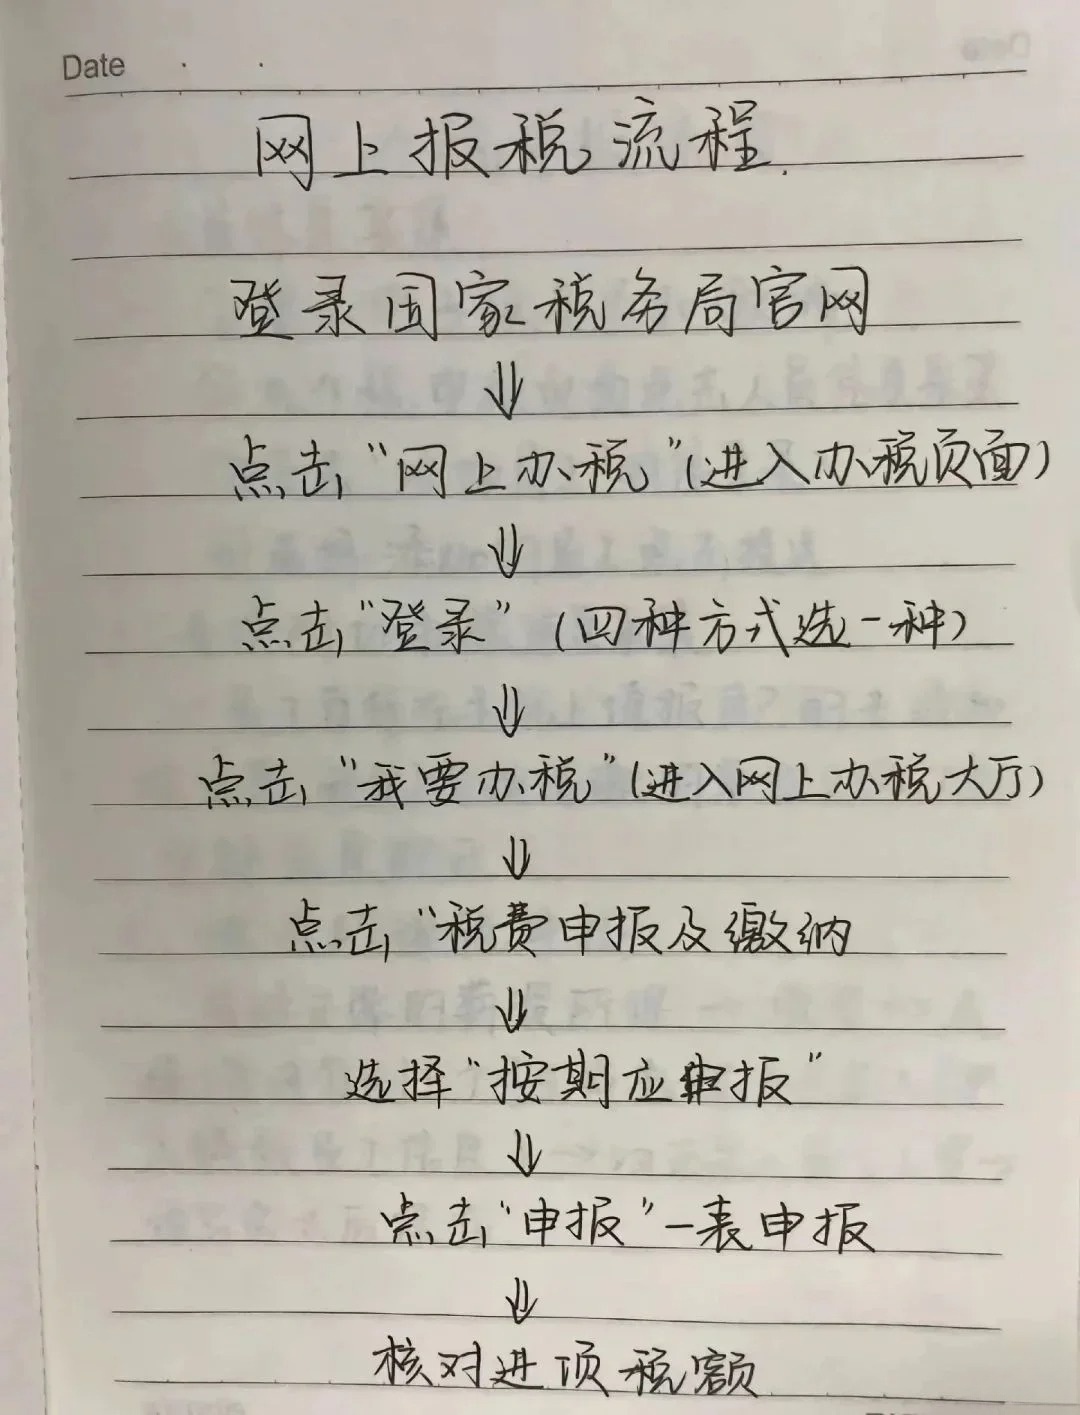 Date
网上报税流程.
登录国家税务局官网
⇓
点击“网上办税”(进入办税页面)
⇓
点击“登录”(四种方式选一种)
⇓
点击“我要办税”(进入网上办税大厅)
⇓
点击“税费申报及缴纳
⇓
选择“按期应申报”
⇓
点击“申报”一表申报
⇓
核对进项税额